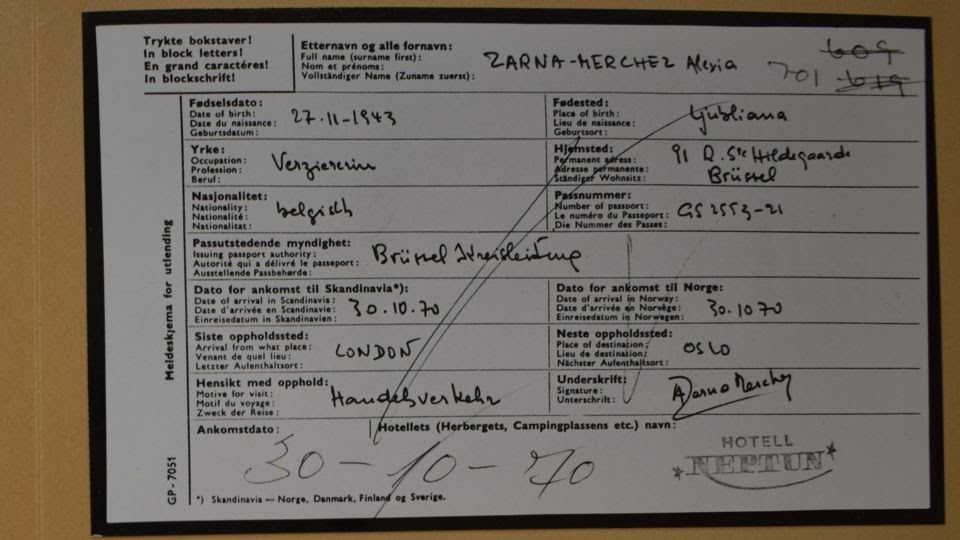 Trykte bokstaver!
In block letters!
En grand caractéres!
In blockschrift!
Etternavn og alle fornavn:
Full name (surname first):
Nom et prénoms:
Vollständiger Name (Zuname zuerst):
ZARNA-MERCHEZ Alexia
609
701 619
Fødselsdato:
Date of birth:
Date du naissance:
Geburtsdatum:
27.11-1943
Fødested:
Place of birth:
Lieu de naissance:
Geburtsort:
Ljubliana
Yrke:
Occupation:
Profession:
Beruf:
Verziererin
Hjemsted:
Permanent adress:
Adresse permanente:
Ständiger Wohnsitz:
91 R. Ste Hildegaarde
Brüssel
Nasjonalitet:
Nationality:
Nationalité:
Nationalitat:
belgisch
Passnummer:
Number of passport:
Le numéro du Passeport:
Die Nummer des Passes:
GS 2553-21
Passutstedende myndighet:
Issuing passport authority:
Autorité qui a délivré le passeport:
Ausstellende Passbehørde:
Brüssel Kreisleitung
Dato for ankomst til Skandinavia*):
Date of arrival in Scandinavia:
Date d'arrivée en Scandinavie:
Einreisedatum in Skandinavien:
30.10.70
Dato for ankomst til Norge:
Date of arrival in Norway:
Date d'arrivée en Norvège:
Einreisedatum in Norwegen:
30.10 70
Siste oppholdssted:
Arrival from what place:
Venant de quel lieu:
Letzter Aufenthaltsort:
LONDON
Neste oppholdssted:
Place of destination:
Lieu de destination:
Nächster Aufenthaltsort:
OSLO
Hensikt med opphold:
Motive for visit:
Motif du voyage:
Zweck der Reise:
Handelsverkehr
Underskrift:
Signature:
Unterschrift:
AZarna Merchez
Ankomstdato:
Hotellets (Herbergets, Campingplassens etc.) navn:
30-10-70
HOTELL
NEPTUN
*) Skandinavia — Norge, Danmark, Finland og Sverige.
Meldeskjema for utlending
GP - 7051